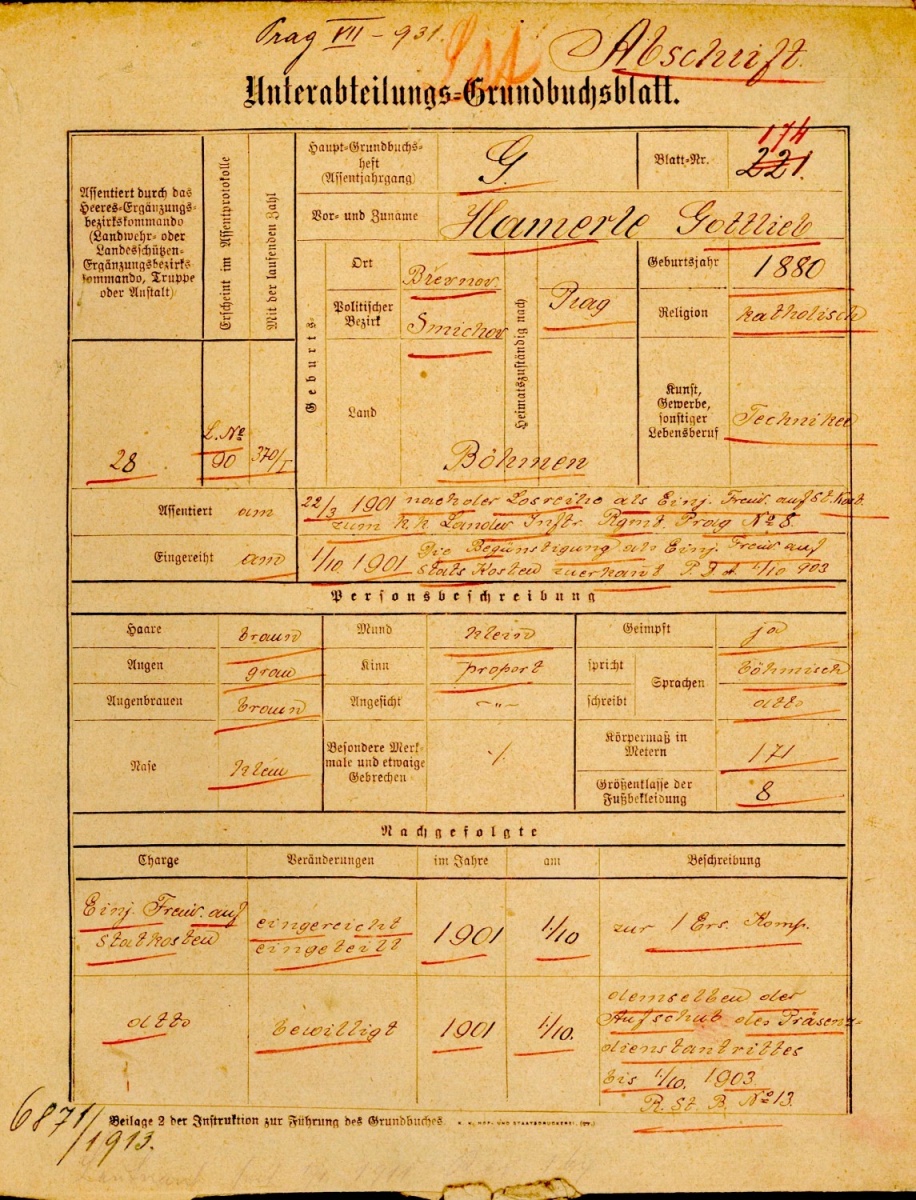 Prag VII - 931.
Abschrift.
Unterabteilungs-Grundbuchsblatt.
Assentiert durch das
Heeres-Ergänzungs-
bezirkskommando
(Landwehr- oder
Landesschützen-
Ergänzungsbezirks
kommando, Truppe
oder Anstalt)
28
Erscheint im Assentprotokolle
L. No
90
Mit der laufenden Zahl
370/I
Haupt-Grundbuchs-
heft
(Assentjahrgang)
G.
Blatt-Nr.
174
221.
Vor- und Zuname
Hamerle Gottlieb
Geburts-
Ort
Břevnov
Politischer
Bezirk
Smichov
Land
Böhmen
Heimatszuständig nach
Prag
Geburtsjahr
1880
Religion
katholisch
Kunst,
Gewerbe,
sonstiger
Lebensberuf
Techniker
Assentiert am
22/3 1901 nach der Losreihe als Einj. Freiw. auf St. Kost.
zum k k Landw Inftr. Rgmt. Prag No 8.
Eingereiht am
1/10. 1901 Die Begünstigung als Einj. Freiw auf
stats Kosten zuerkant P. J. A. 1/10 903
Personsbeschreibung
Haare braun
Mund klein
Geimpft ja
Augen grau
Kinn proport
spricht
Sprachen
böhmisch
Augenbrauen braun
Angesicht -"-
schreibt
dtto
Nase klein
Besondere Merk-
male und etwaige
Gebrechen
./.
Körpermaß in
Metern
171
Größenklasse der
Fußbekleidung
8
Nachgefolgte
Charge Veränderungen im Jahre am Beschreibung
Einj. Freiw. auf
statkosten
eingereicht
eingeteilt
1901 1/10
zur 1 Ers. Komp.
dtto bewilligt 1901 1/10.
demselben der
Aufschub des Präsenz-
dienstantrittes
bis 1/10. 1903
R. St. B. No 13.
6871/
/1913.
Beilage 2 der Instruktion zur Führung des Grundbuches.
K. K. HOF- UND STAATSDRUCKEREI.